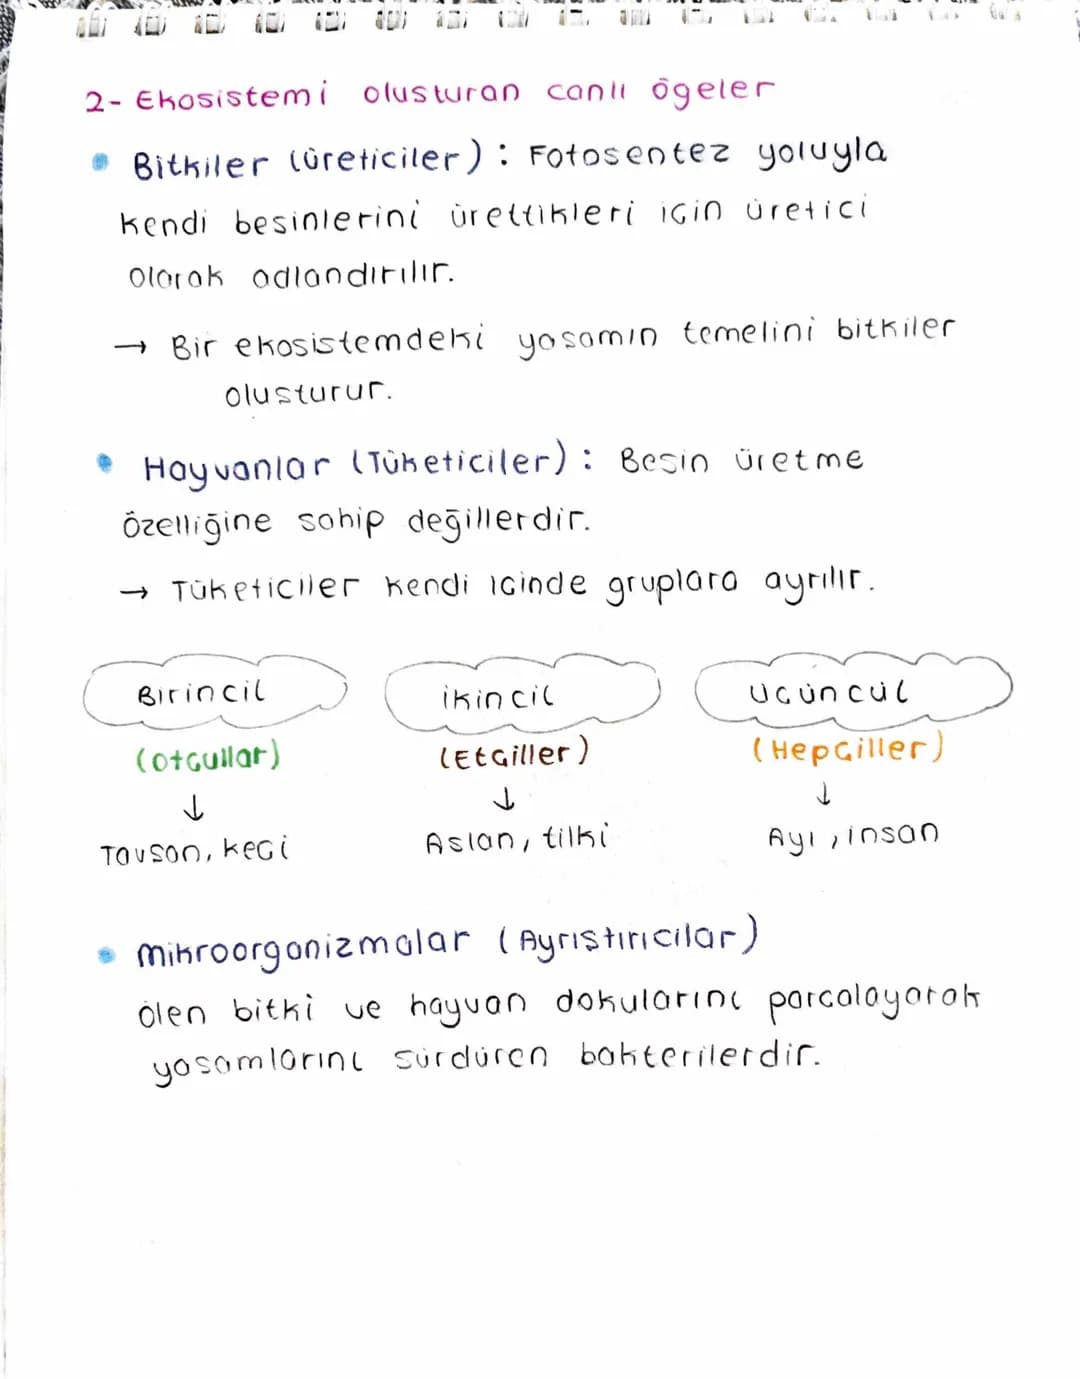 2- Ekosistemi olusturan canlı ögeler
Bitkiler (üreticiler) : Fotosentez yoluyla
kendi besinlerini ürettikleri için üretici
olarak adlandırılır.
→ Bir ekosistemdeki yasamın temelini bitkiler
olusturur.
Hayvanlar (Tüketiciler) : Besin üretme
özelliğine sahip değillerdir.
→ Tüketiciler kendi icinde gruplara ayrılır.
Birincil
ikincil
ucüncül
(otçullar)
(Etçiller)
(Hepçiller)
↓
↓
↓
Tavsan, keçi
Aslan, tilki
Ayı, insan
Mikroorganizmalar (Ayrıstırıcılar)
ölen bitki ve hayvan dokularını parcalayarak
yasamlarını sürdüren bakterilerdir.